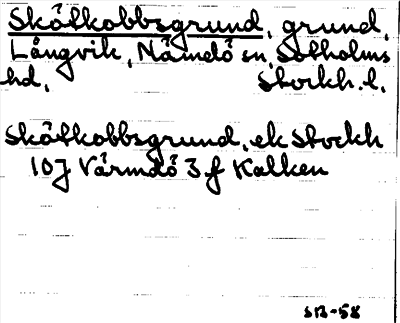 Skötkobbsgrund, grund,
Långvik, Nämdö sn, Sotholms
hd, Stockh. l.
Skötkobbsgrund, ek Stockh
10J Värmdö 3 f Kalken
SB-58